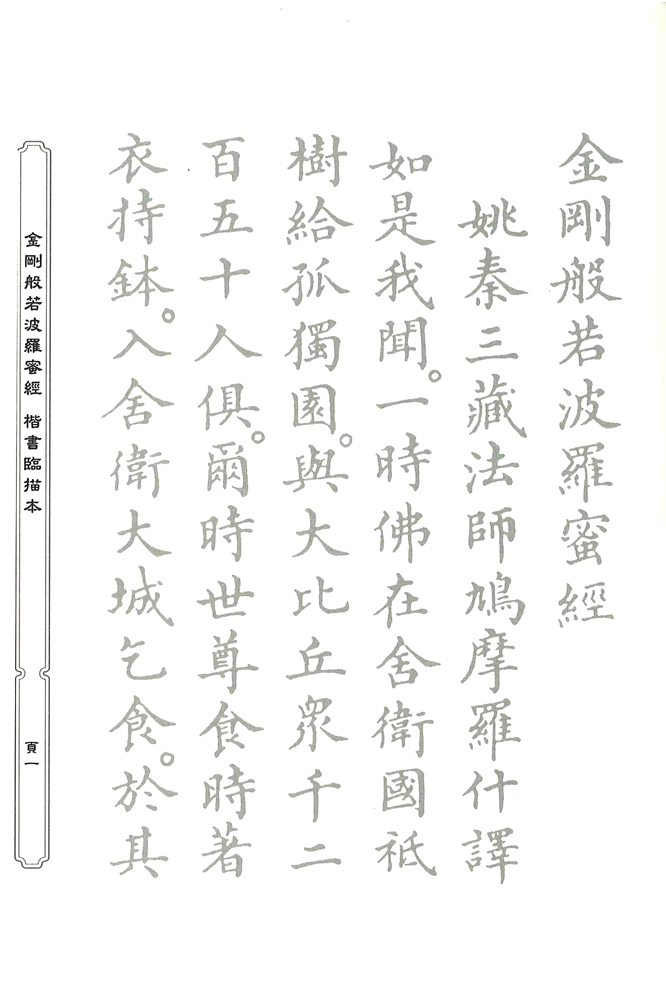 金剛般若波羅蜜經
姚秦三藏法師鳩摩羅什譯
如是我聞。一時佛在舍衛國祇
樹給孤獨園。與大比丘眾千二
百五十人俱。爾時世尊食時著
衣持鉢。入舍衛大城乞食。於其
金剛般若波羅蜜經 楷書臨描本
頁一